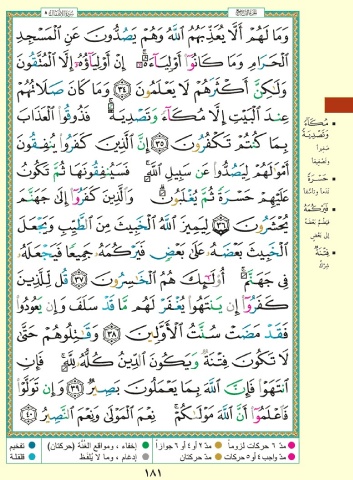 وَمَا لَهُمْ أَلَّا يُعَذِّبَهُمُ ٱللَّهُ وَهُمْ يَصُدُّونَ عَنِ ٱلْمَسْجِدِ
ٱلْحَرَامِ وَمَا كَانُوٓا۟ أَوْلِيَآءَهُۥٓ ۚ إِنْ أَوْلِيَآؤُهُۥٓ إِلَّا ٱلْمُتَّقُونَ
وَلَٰكِنَّ أَكْثَرَهُمْ لَا يَعْلَمُونَ ٣٤ وَمَا كَانَ صَلَاتُهُمْ
عِندَ ٱلْبَيْتِ إِلَّا مُكَآءً وَتَصْدِيَةً ۚ فَذُوقُوا۟ ٱلْعَذَابَ
بِمَا كُنتُمْ تَكْفُرُونَ ٣٥ إِنَّ ٱلَّذِينَ كَفَرُوا۟ يُنفِقُونَ
أَمْوَٰلَهُمْ لِيَصُدُّوا۟ عَن سَبِيلِ ٱللَّهِ ۚ فَسَيُنفِقُونَهَا ثُمَّ تَكُونُ
عَلَيْهِمْ حَسْرَةً ثُمَّ يُغْلَبُونَ ۗ وَٱلَّذِينَ كَفَرُوٓا۟ إِلَىٰ جَهَنَّمَ
يُحْشَرُونَ ٣٦ لِيَمِيزَ ٱللَّهُ ٱلْخَبِيثَ مِنَ ٱلطَّيِّبِ وَيَجْعَلَ
ٱلْخَبِيثَ بَعْضَهُۥ عَلَىٰ بَعْضٍ فَيَرْكُمَهُۥ جَمِيعًا فَيَجْعَلَهُۥ
فِى جَهَنَّمَ ۚ أُو۟لَٰٓئِكَ هُمُ ٱلْخَٰسِرُونَ ٣٧ قُل لِّلَّذِينَ
كَفَرُوٓا۟ إِن يَنتَهُوا۟ يُغْفَرْ لَهُم مَّا قَدْ سَلَفَ وَإِن يَعُودُوا۟
فَقَدْ مَضَتْ سُنَّتُ ٱلْأَوَّلِينَ ٣٨ وَقَٰتِلُوهُمْ حَتَّىٰ
لَا تَكُونَ فِتْنَةٌ وَيَكُونَ ٱلدِّينُ كُلُّهُۥ لِلَّهِ ۚ فَإِنِ
ٱنتَهَوْا۟ فَإِنَّ ٱللَّهَ بِمَا يَعْمَلُونَ بَصِيرٌ ٣٩ وَإِن تَوَلَّوْا۟
فَٱعْلَمُوٓا۟ أَنَّ ٱللَّهَ مَوْلَىٰكُمْ ۚ نِعْمَ ٱلْمَوْلَىٰ وَنِعْمَ ٱلنَّصِيرُ ٤٠
مُكَآءً
وَتَصْدِيَةً
صفيراً
وتصفيقاً
حَسْرَةً
ندماً وتأسفاً
فَيَرْكُمَهُ
فيضم بعضه
إلى بعض
فِتْنَةٌ
شرك
مدّ ٦ حركات لزوماً مدّ ٢ أو ٤ أو ٦ جوازاً إخفاء، ومواقع الغنّة (حركتان) تفخيم
مدّ واجب ٤ أو ٥ حركات مدّ حركتان إدغام، وما لا يُلفَظ قلقلة
١٨١